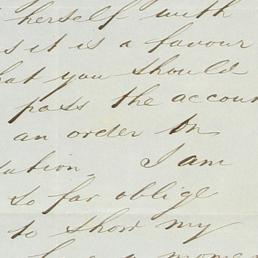 herself with
s it is a favour
hat you should
pass the accoun
an order on
tation I am
so far oblige
to show my